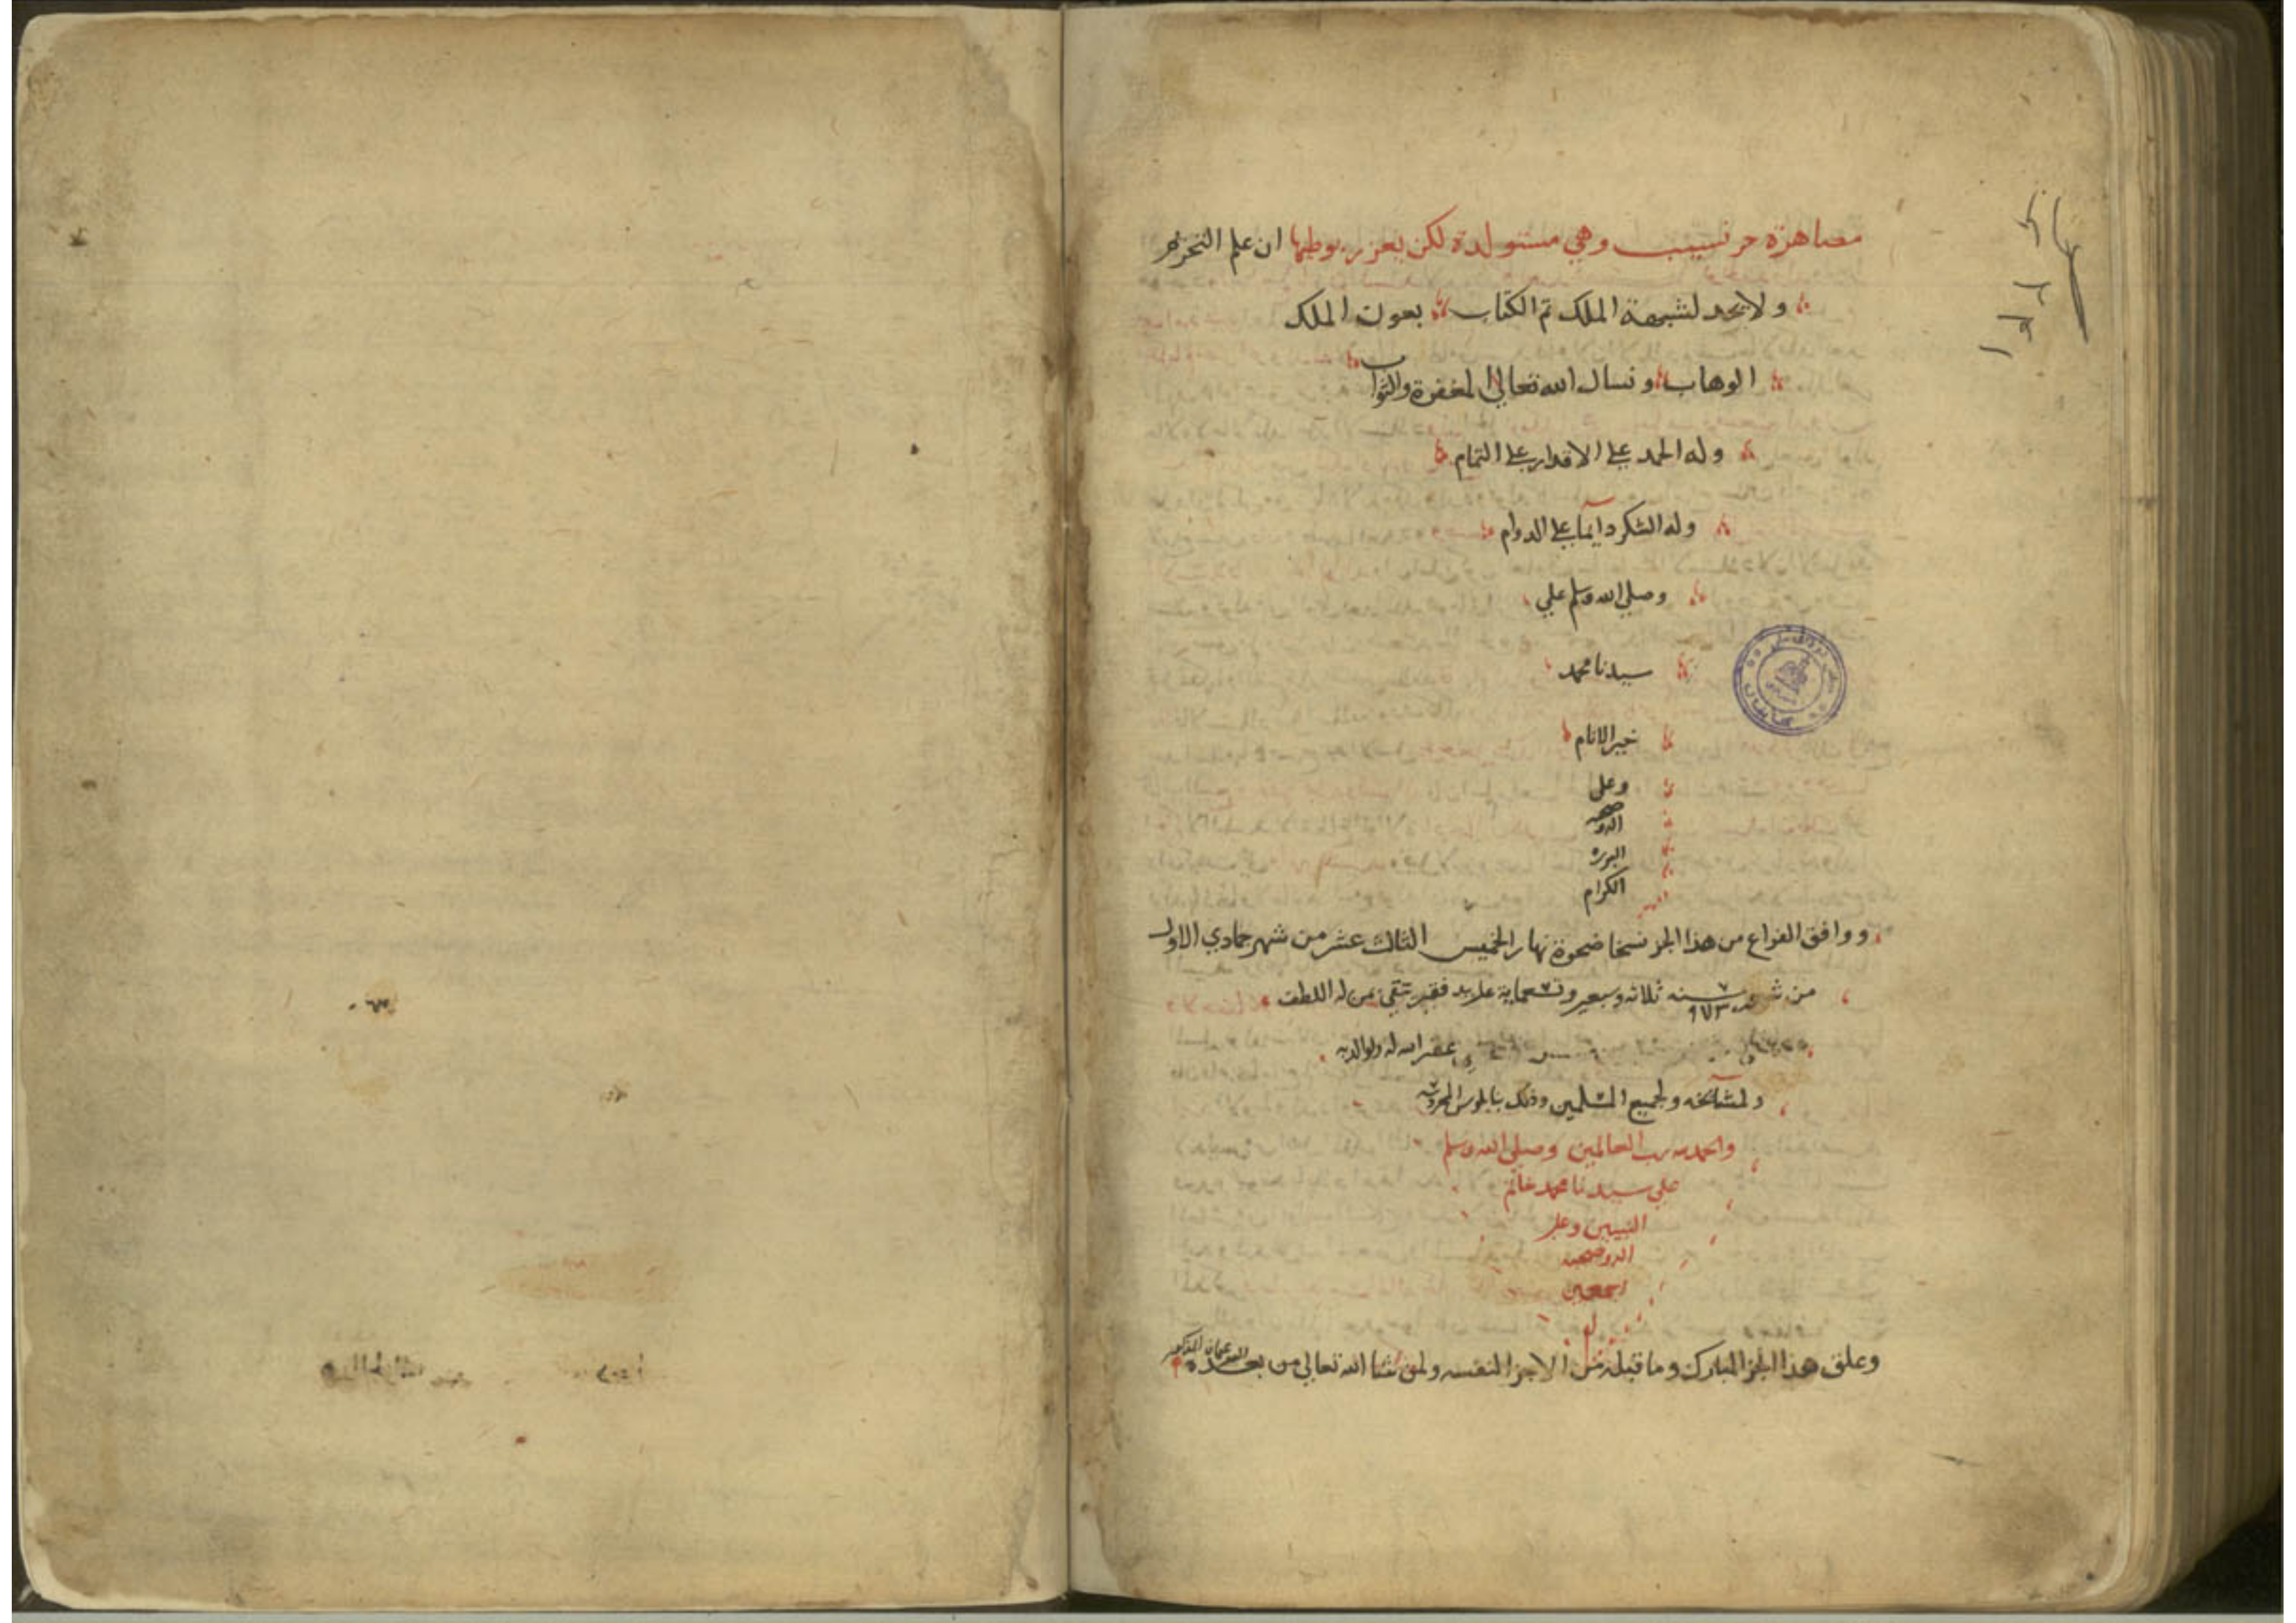 مصاهرة حر نسيب وهي مستولدة لكن يعزر بوطيها ان علم التحريم
ولا يحد لشبهة الملك تم الكتاب بعون الملك
الوهاب ونسال الله تعالى المغفرة والثواب
وله الحمد على الاقدار على التمام
وله الشكر دايما على الدوام
وصلى الله وسلم على
سيدنا محمد
خير الانام
وعلى
اله وصحبه
البررة
الكرام
ووافق الفراغ من هذا الجز نسخا ضحوة نهار الخميس الثالث عشر من شهر جمادي الاول
من سنه ٩٧٣ ثلاثه وسبعين وتسعماية على يد فقير من له اللطف
غفر الله له ولوالديه
ولمشايخه ولجميع المسلمين وذلك المحروسه
والحمد لله رب العالمين وصلى الله وسلم
على سيدنا محمد خاتم
النبيين وعلى
اله وصحبه
اجمعين
وعلق هذا الجز المبارك وما قبله من الاجزا له ولمن شا الله تعالى من بعده